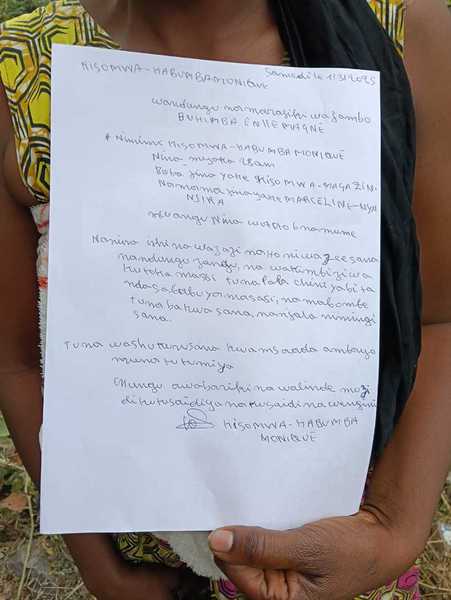 KISOMWA-HABUMBA MONIQUE
Samedi le 1/3/2025
wandungu na marafiki wa Jambo
BUHIMBA EN ALLEMAGNE
* Nimimi KISOMWA-HABUMBA MONIQUE
Nina miyaka
Baba jina yake KISOMWA-MAGAZIN
Na mama jina yake MARCELINE-
NJIRA
Nina watoto bna mume
Nanina ishi na wazazi na ho ni wazee sana
na ndungu zangu, na wakimbiziwa
kutoka massi tuna lala chini ya bita
ndasababu ya masasi, na mabombe
tuna bakwa sana, na njala nimingi
sana.
Tuna washukuru sana kwa msaada ambayo
muna tutumiya
Mungu awabariki na walinde muzi
di kutusaidiya na tusaidi na wengini
KISOMWA-HABUMBA
MONIQUE